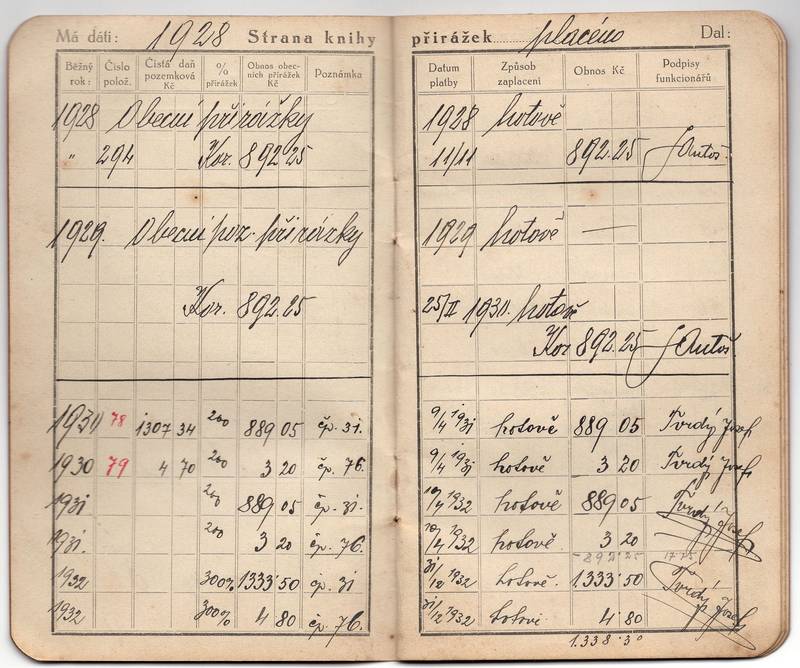 Má dáti: 1928 Strana knihy
Běžný rok: Číslo polož. Čistá daň pozemková Kč % přirážek Obnos obecních přirážek Kč Poznámka
1928 Obecní přirážky
" 294 Kor. 892.25
1929. Obecní poz. přirážky
Kor. 892.25
1930 78 1307 34 200 889 05 čp. 31.
1930 79 4 70 200 3 20 čp. 76.
1931 200 889 05 čp. 31.
1931. 200 3 20 čp. 76.
1932 300% 1333·50 čp. 31
1932 300% 4 80 čp. 76.
přirážek placeno Dal:
Datum platby Způsob zaplacení Obnos Kč Podpisy funkcionářů
1928 hotově
11/11 892.25
1929 hotově —
25/II 1930. hotově
Kor 892.25
9/4 1931 hotově 889 05 Tvrdý Josef
9/4 1931 hotově 3 20 Tvrdý Josef
10/4 1932 hotově 889 05 Tvrdý Josef
10/4 1932 hotově 3 20
892.25
31/12 1932 hotově. 1333·50 Tvrdý Josef
31/12 1932 hotově 4·80
1.338·30